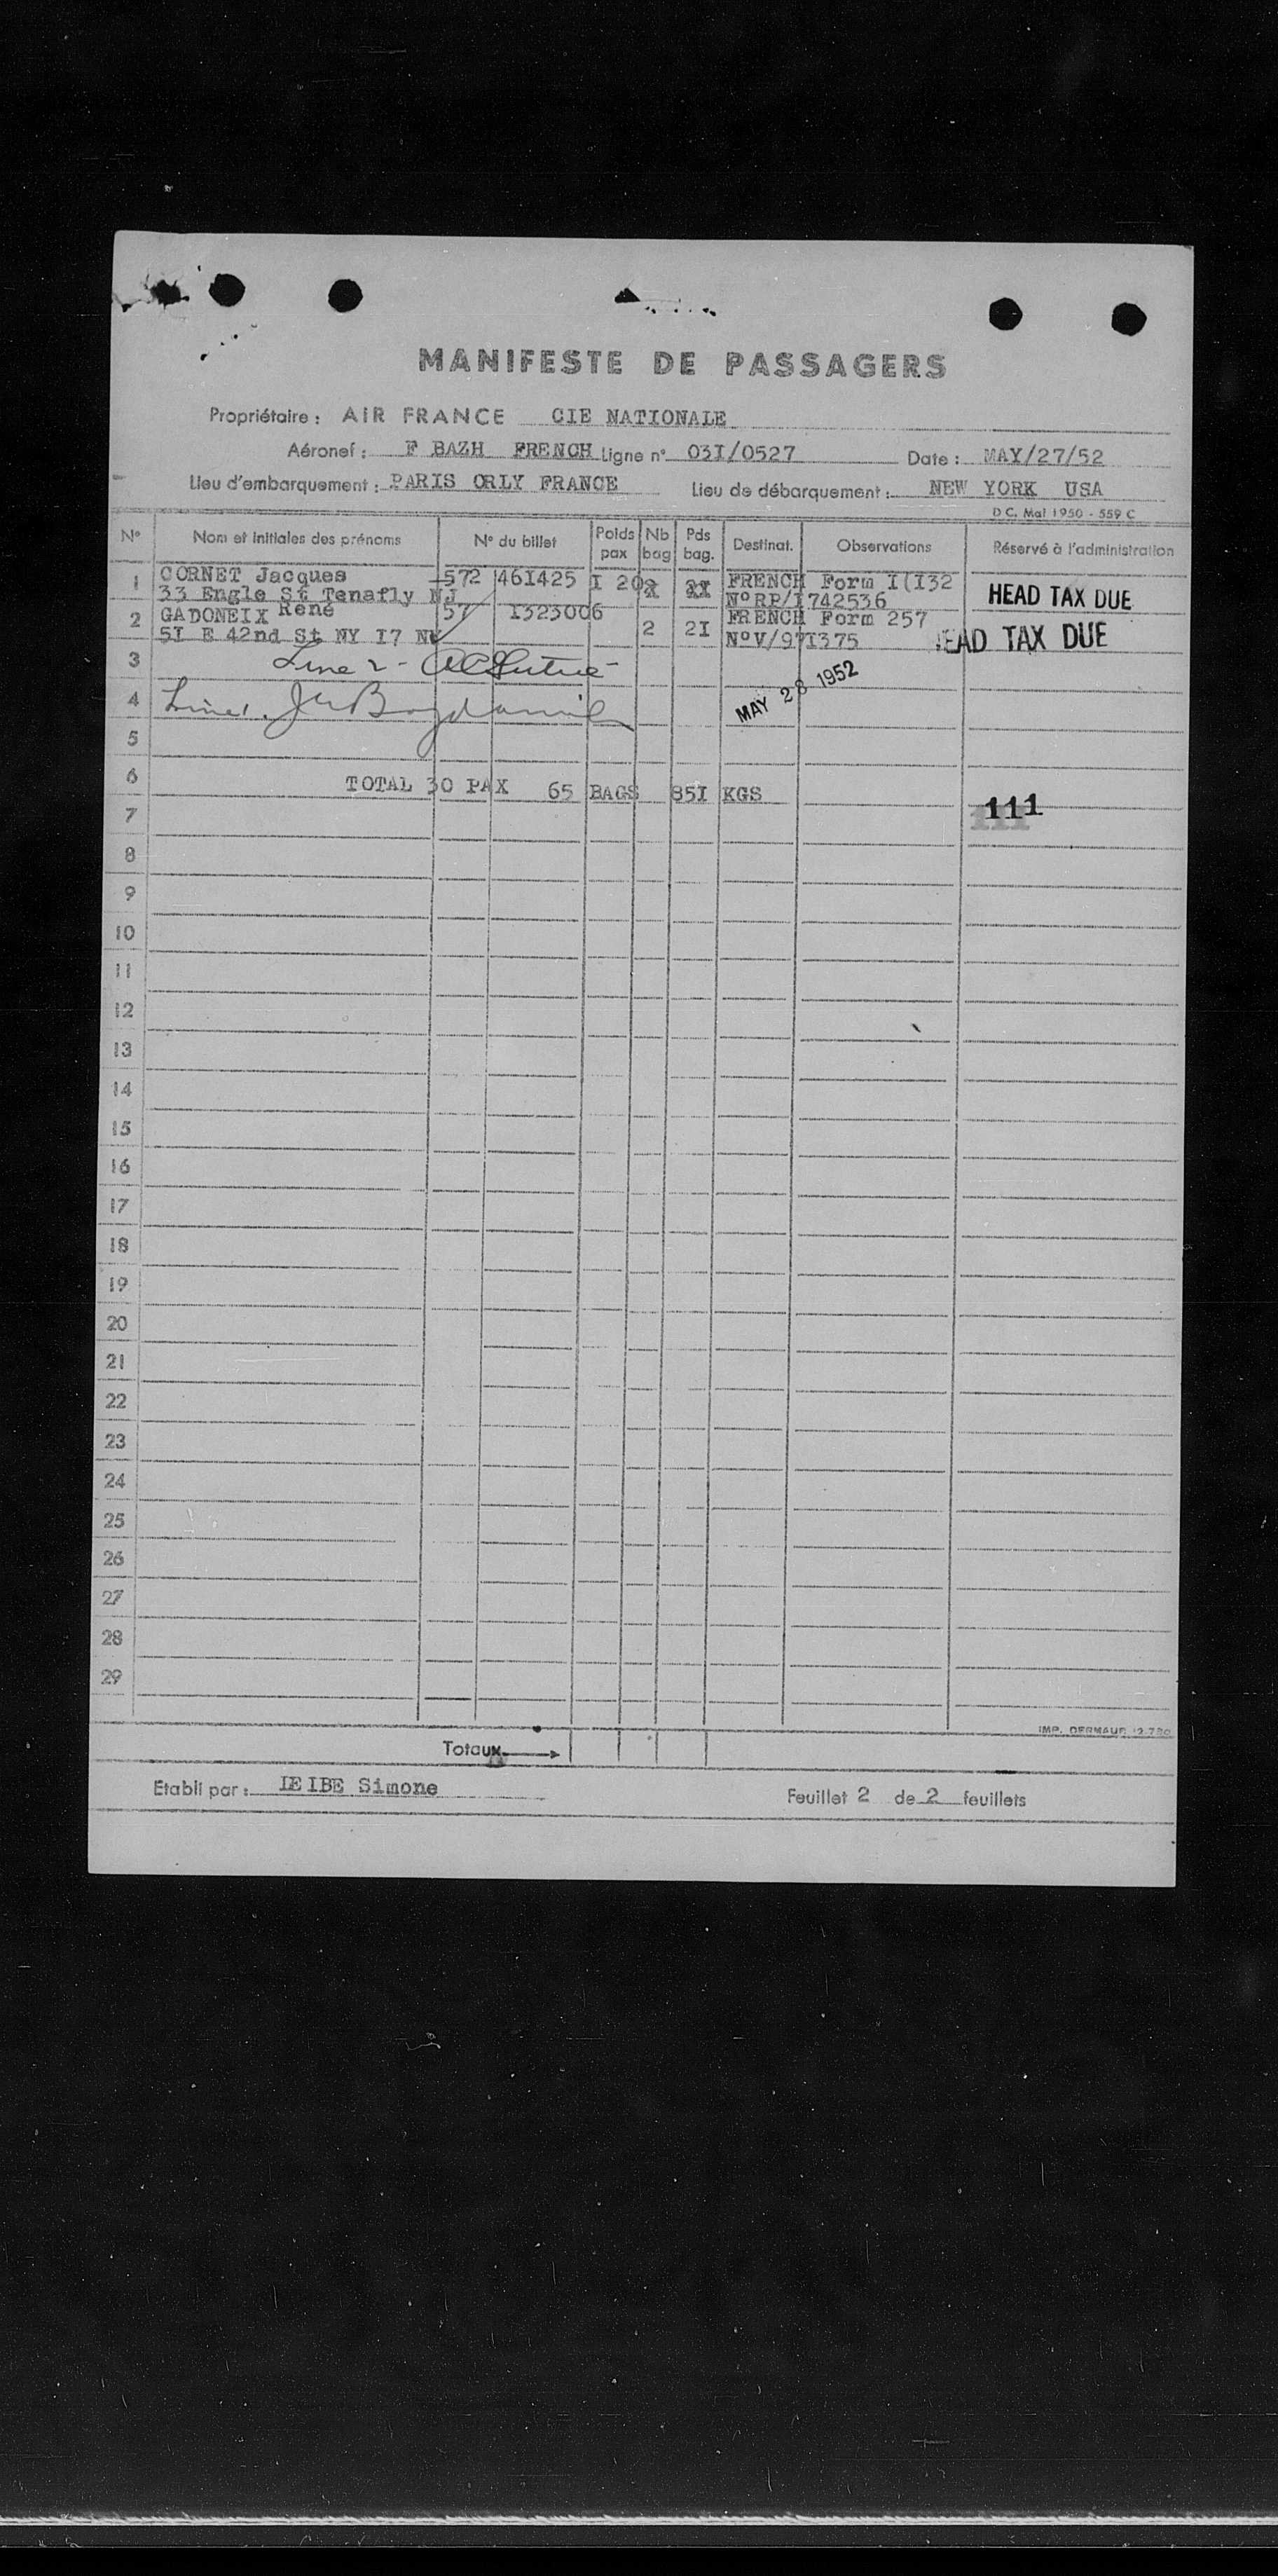 MANIFESTE DE PASSAGERS
Propriétaire : AIR FRANCE CIE NATIONALE
Aéronef : F BAZH FRENCH Ligne n° 03I/0527 Date : MAY/27/52
Lieu d'embarquement : PARIS ORLY FRANCE Lieu de débarquement : NEW YORK USA
D C. Mai 1950 - 559 C
N° Nom et initiales des prénoms N° du billet Poids pax Nb bag Pds bag. Destinat. Observations Réservé à l'administration
1 CORNET Jacques 572 46I425 I 20 FRENCH Form I(I32 HEAD TAX DUE
33 Engle St Tenafly NJ N°RP/I742536
2 GADONEIX René 57 I323006 FRENCH Form 257
5I E 42nd St NY I7 NY 2 2I N°V/97I375 HEAD TAX DUE
3 Line 2 -
MAY 28 1952
4 Line 1.
5
6
TOTAL 30 PAX 65 BAGS 85I KGS
111
7
8
9
10
11
12
13
14
15
16
17
18
19
20
21
22
23
24
25
26
27
28
29
IMP. DERMAUF
Totaux
Etabli par : IEIBE Simone Feuillet 2 de 2 feuillets